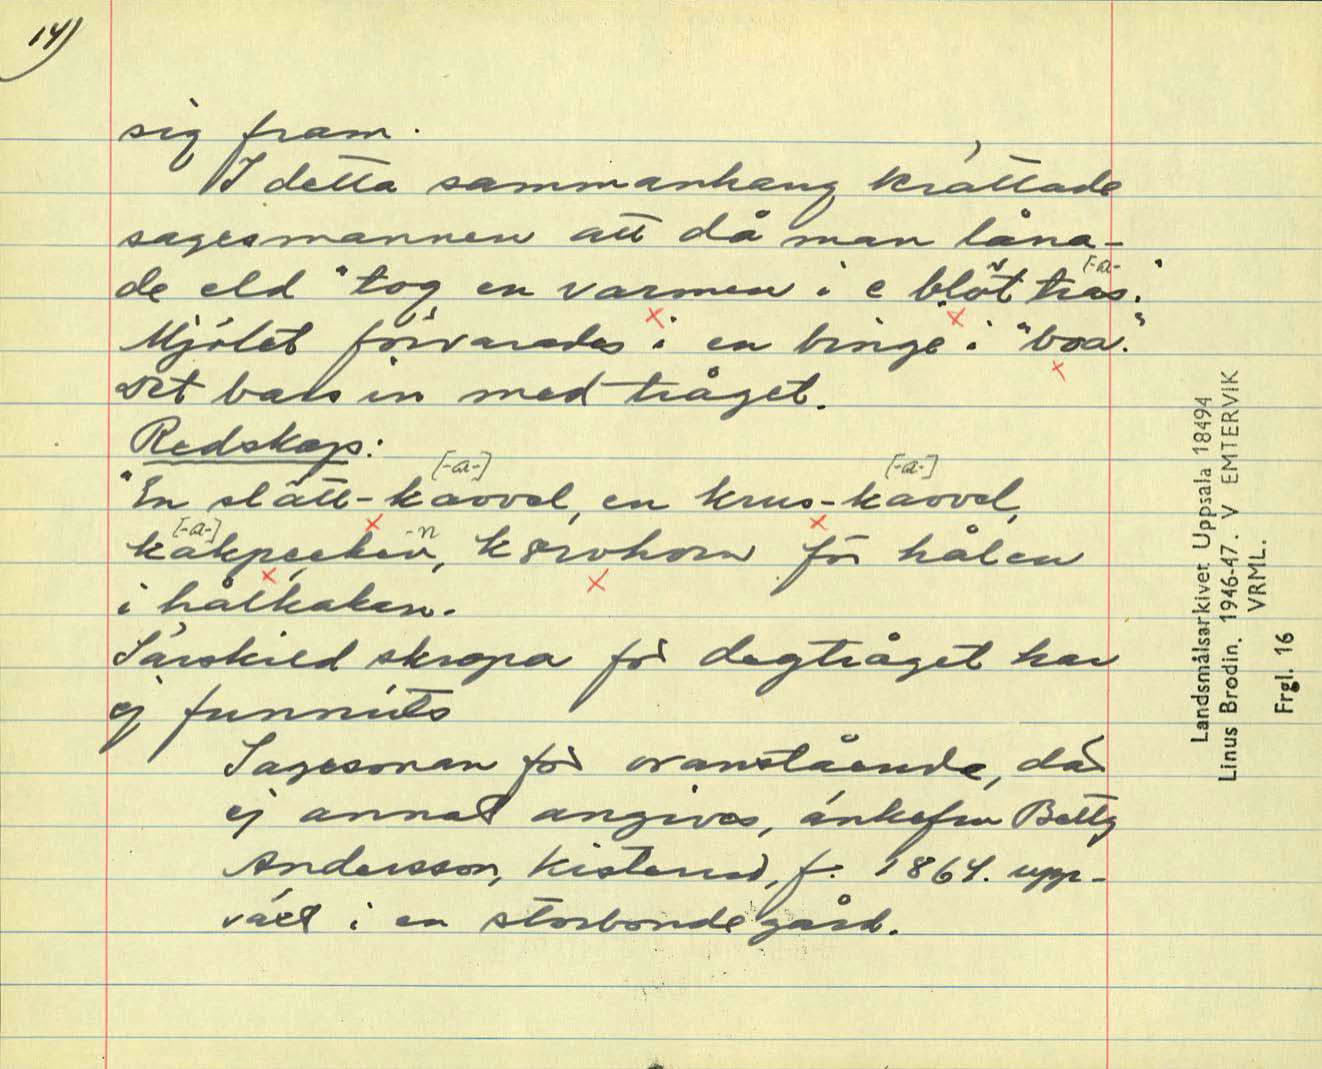 14)
sig fram.
I detta sammanhang krättade
sagesmannen att då man låna-
de eld "tog en varmen i e blöt tras."
[-a-
Mjölet förvarades i en binge i "boa."
Det bars in med tråget.
Redskap:
[-a-] [-a-]
"En slätt-kavvel, en krus-kavvel,
[-a-] -n
kakpecken, kørvhorn för hålen
i hålkakan.
Särskild skrapa för degtråget har
ej funnits
Sagesman för ovanstående, där
ej annat angives, änkefru Betty
Andersson, Kisterud, f. 1864. upp-
växt i en storbondegård.
Landsmålsarkivet Uppsala 18494
Linus Brodin. 1946-47. V EMTERVIK
VRML.
Frgl. 16